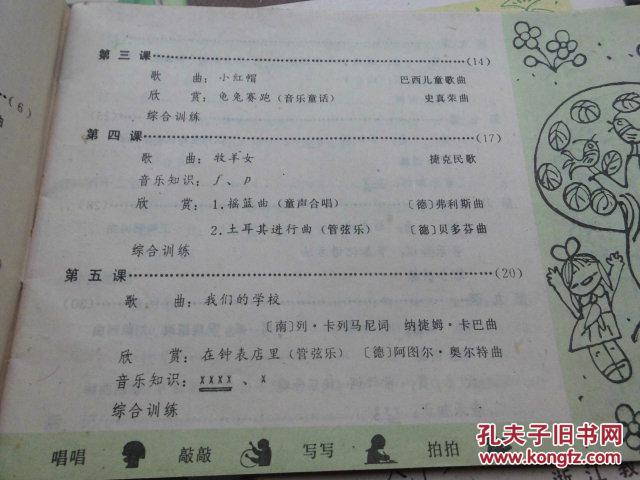 第三课 (14)
歌 曲：小红帽 巴西儿童歌曲
欣 赏：龟兔赛跑（音乐童话） 史真荣曲
综合训练
第四课 (17)
歌 曲：牧羊女 捷克民歌
音乐知识：f、p
欣 赏：1.摇篮曲（童声合唱） 〔德〕弗利斯曲
2.土耳其进行曲（管弦乐） 〔德〕贝多芬曲
综合训练
第五课 (20)
歌 曲：我们的学校
〔南〕列·卡列马尼词 纳捷姆·卡巴曲
欣 赏：在钟表店里（管弦乐） 〔德〕阿图尔·奥尔特曲
音乐知识：xxxx、x
综合训练
唱唱 敲敲 写写 拍拍
(6)
曲
孔夫子旧书网
www.kongfz.com
浙江教